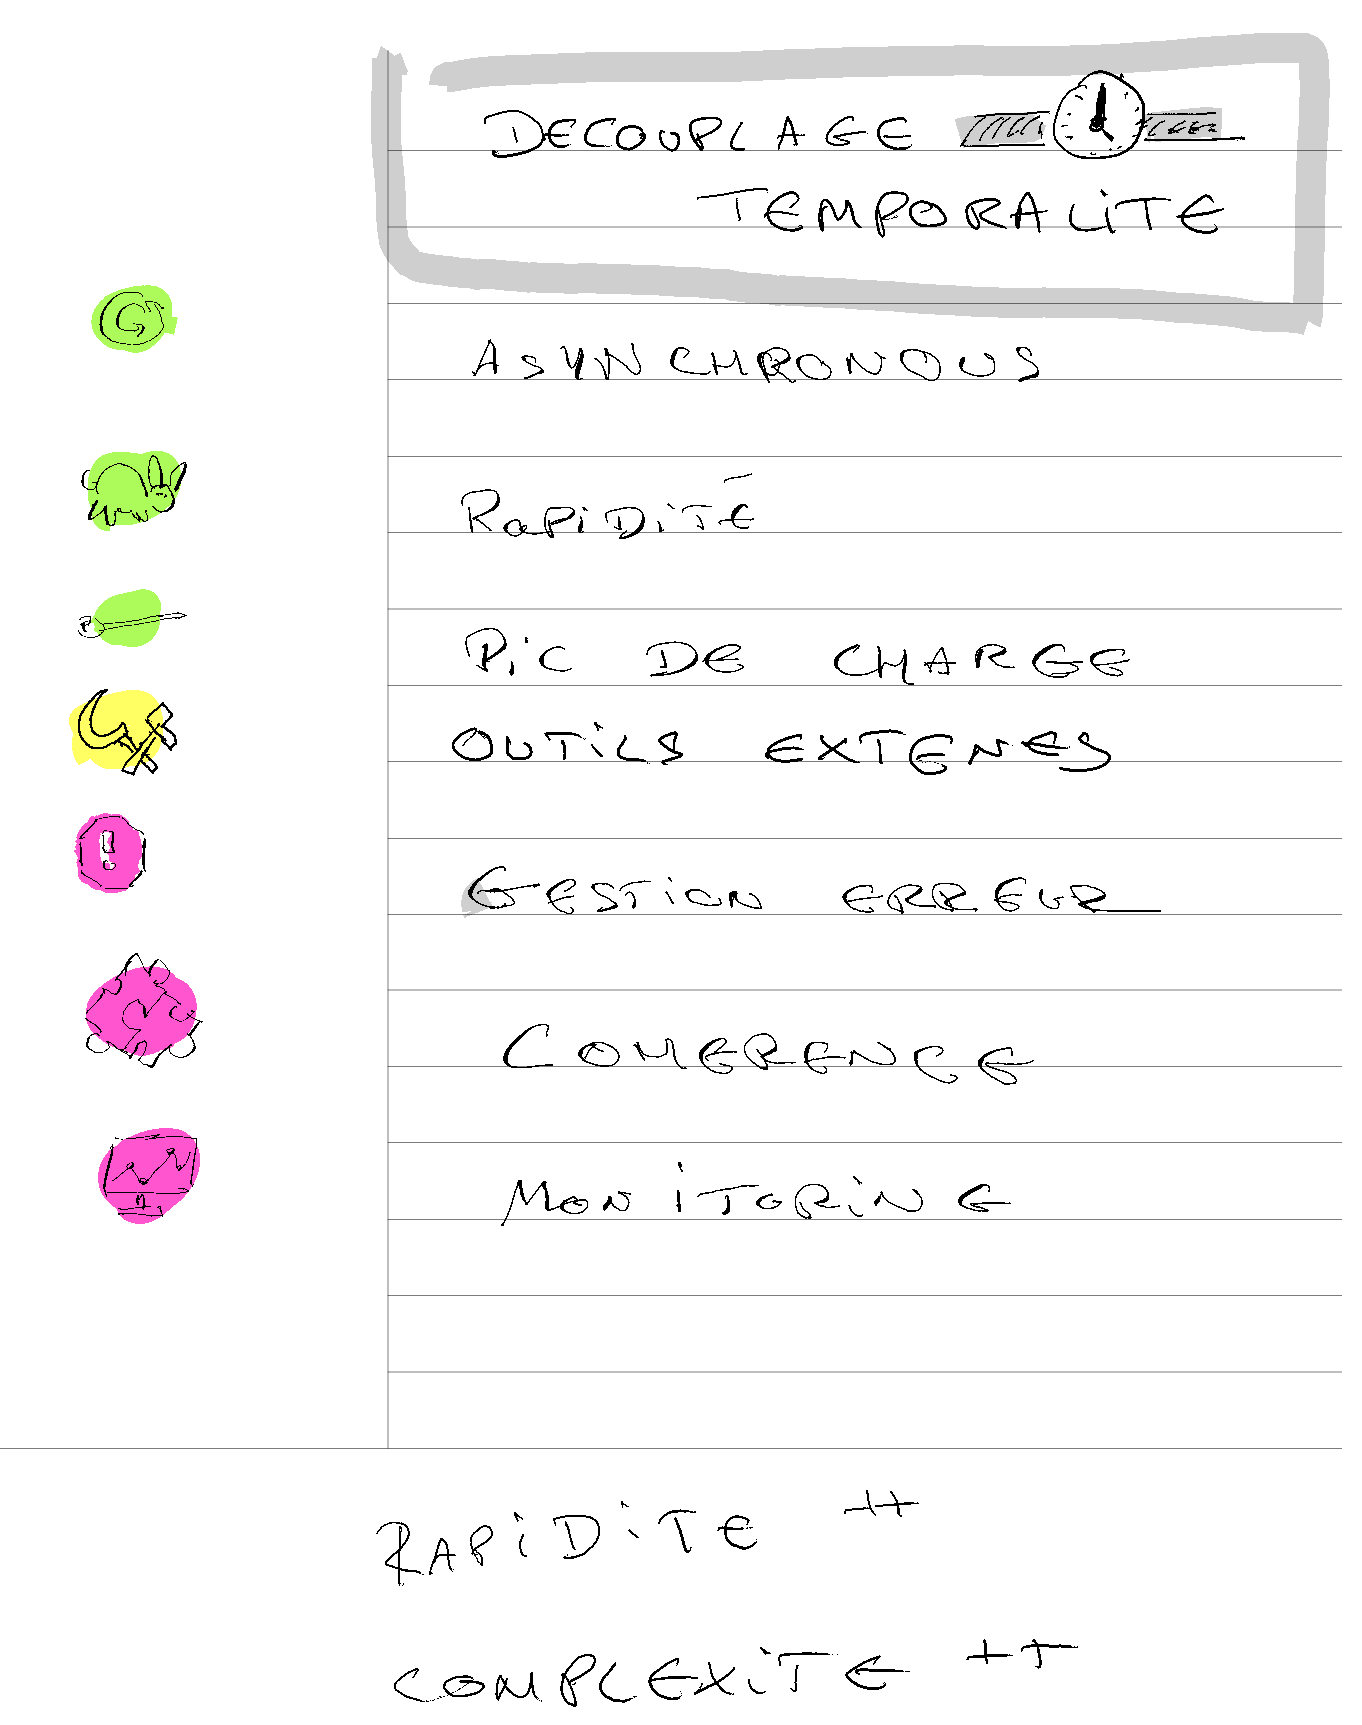 DECOUPLAGE
TEMPORALITE
ASYNCHRONOUS
RaPiDiTé
PiC DE CHARGE
OUTiLS EXTENES
GESTiON ERREUR
COHERENCE
MONiTORiNG
RAPiDiTE ++
COMPLEXiTE ++